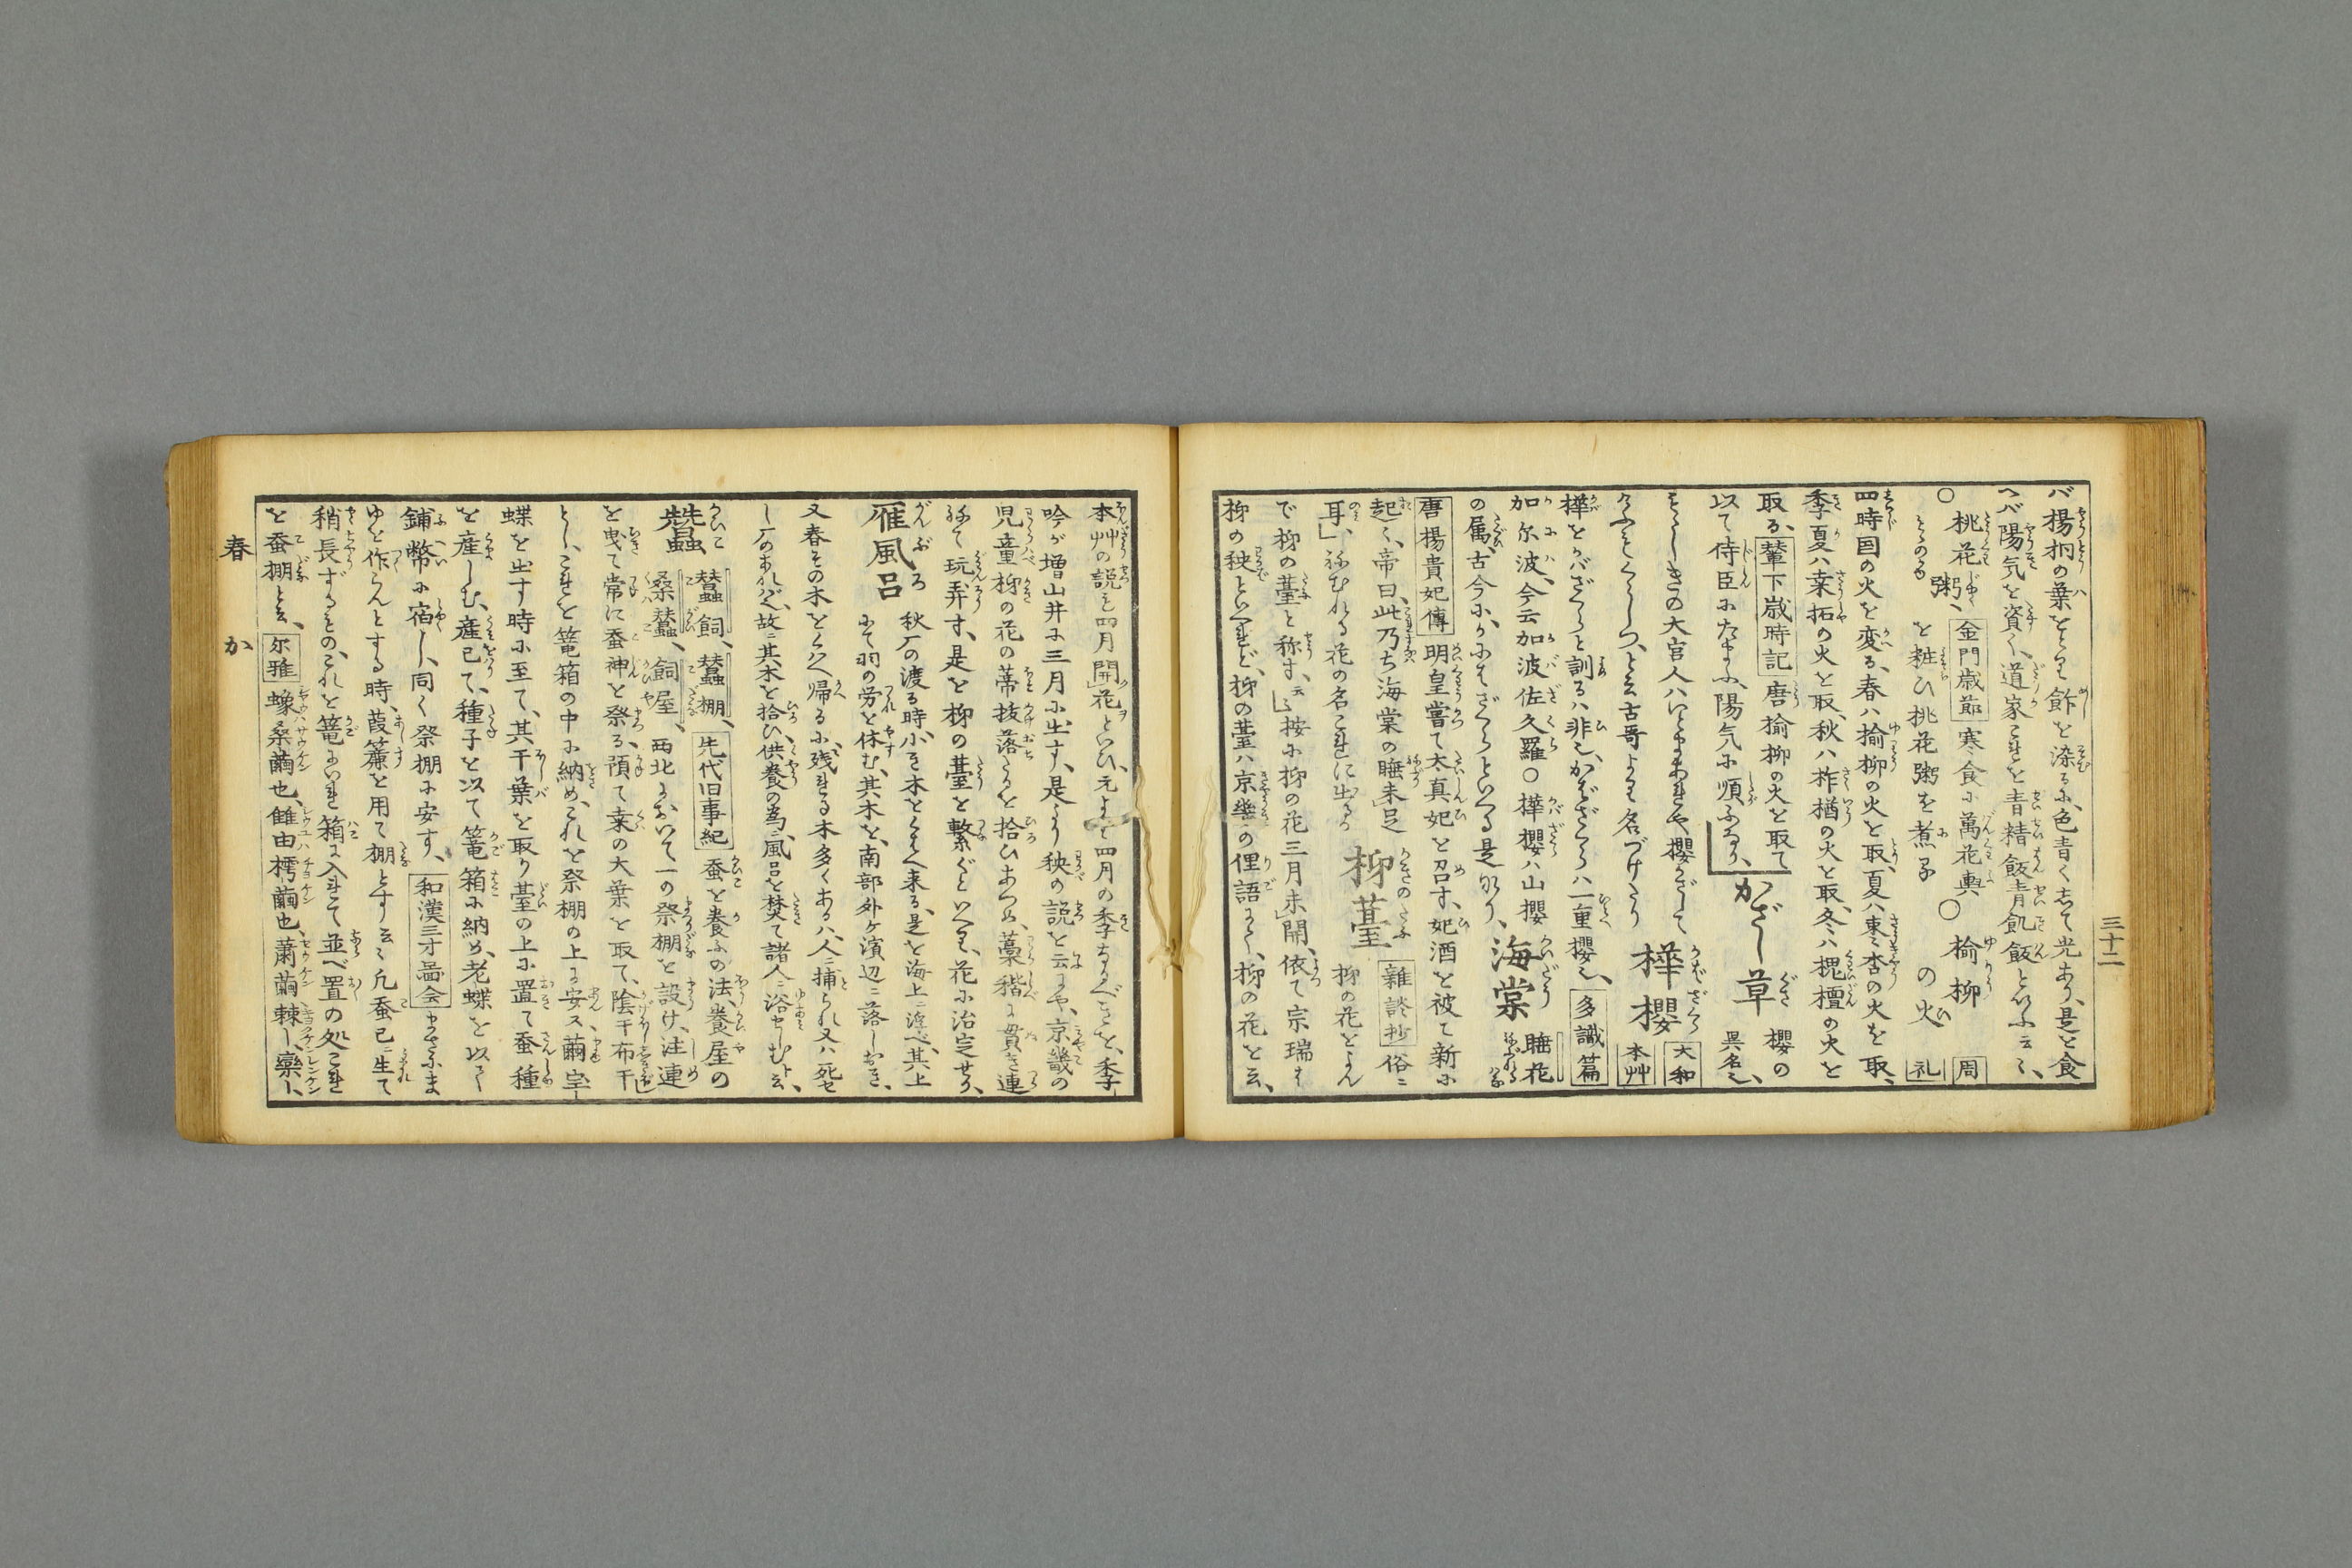 三十二
バ楊桐の葉をとりて飯を染るに、色青く志て光あり、是を食
へバ陽気を資く、道家これを青精飯青飢飯といふ云々、
○桃花粥、金門歳節 寒食に萬花輿 ○楡柳の火 周礼
を粧ひ桃花粥を煮る
四時国の火を変る、春ハ楡柳の火を取、夏ハ棗杏の火を取、
季夏ハ桒拓の火を取、秋ハ柞楢の火を取、冬ハ槐檀の火を
取る、輦下歳時記 唐楡柳の火を取て
以て侍臣にたまふ、陽気に順ふなり、 かざし草 櫻の異名也、
もゝしきの大宮人ハいとまあれや櫻かざして
けふもくらしつ、と云古哥より名づけたり 樺櫻 大和本艸
樺をかバざくらと訓るハ非也、かばざくらハ一重櫻也、多識篇
加尓波、今云加波佐久羅○樺櫻ハ山櫻
の属、古今に、かにはざくらといへる是なり、 海棠 睡花
唐楊貴妃傳 明皇嘗て太真妃を召す、妃酒を被て新に
起く、帝曰、此乃ち海棠の睡未足
耳、ねむれる花の名これに出る 柳䑓 雜談抄 俗ニ柳の花をよん
で柳の䑓と称す、云々按に柳の花三月未開、依て宗瑞も
柳の秧といへれど、柳の䑓ハ京幾の俚語にて、柳の花を云、
本艸の説も四月開花といひ、元より四月の季なるべきを、季
吟が増山井に三月に出す、是より秧の説を云にや、京畿の
児童柳の花の蒂抜落るを拾ひあつめ、藁稭に貫き連
ねて玩弄す、是を柳の䑓を繋ぐといへり、花に治定せり、
雁風呂 秋厂の渡る時、小き木をくはへ来る、是を海上ニ浮べ、其上
にて羽の労を休む、其木を、南部外ケ濱辺ニ落しおき、
又春その木をくはへ帰るに、残れる木多くあるハ、人ニ捕られ又ハ死せ
し厂のあれバ也、故ニ其木を拾ひ、供養の為ニ風呂を焚て諸人ニ浴せしむト云、
蠶 蠶飼、蠶棚、先代旧事紀 蚕を養ふの法、養屋の
桑蠶、飼屋、西北において一の祭棚を設け、注連
を曳て常に蚕神を祭る、預て桒の大葉を取て、陰干布干
とし、これを篭箱の中に納め、これを祭棚の上に安ス、繭
蝶を出す時に至て、其干葉を取り䑓の上に置て蚕種
を産しむ、産已て、種子を以て篭箱に納め、老蝶を以て
鋪幣に宿し、同く祭棚に安す、和漢三才圖会 かふこま
ゆを作らんとする時、葭簾を用て棚とす云々凡蚕已ニ生て
稍長ずるもの、これを篭にいれ箱に入れて並べ置の処これ
を蚕棚と云、尓雅 蟓桑繭也、雔由樗繭也、蕭繭棘ー、欒ー、
春 か